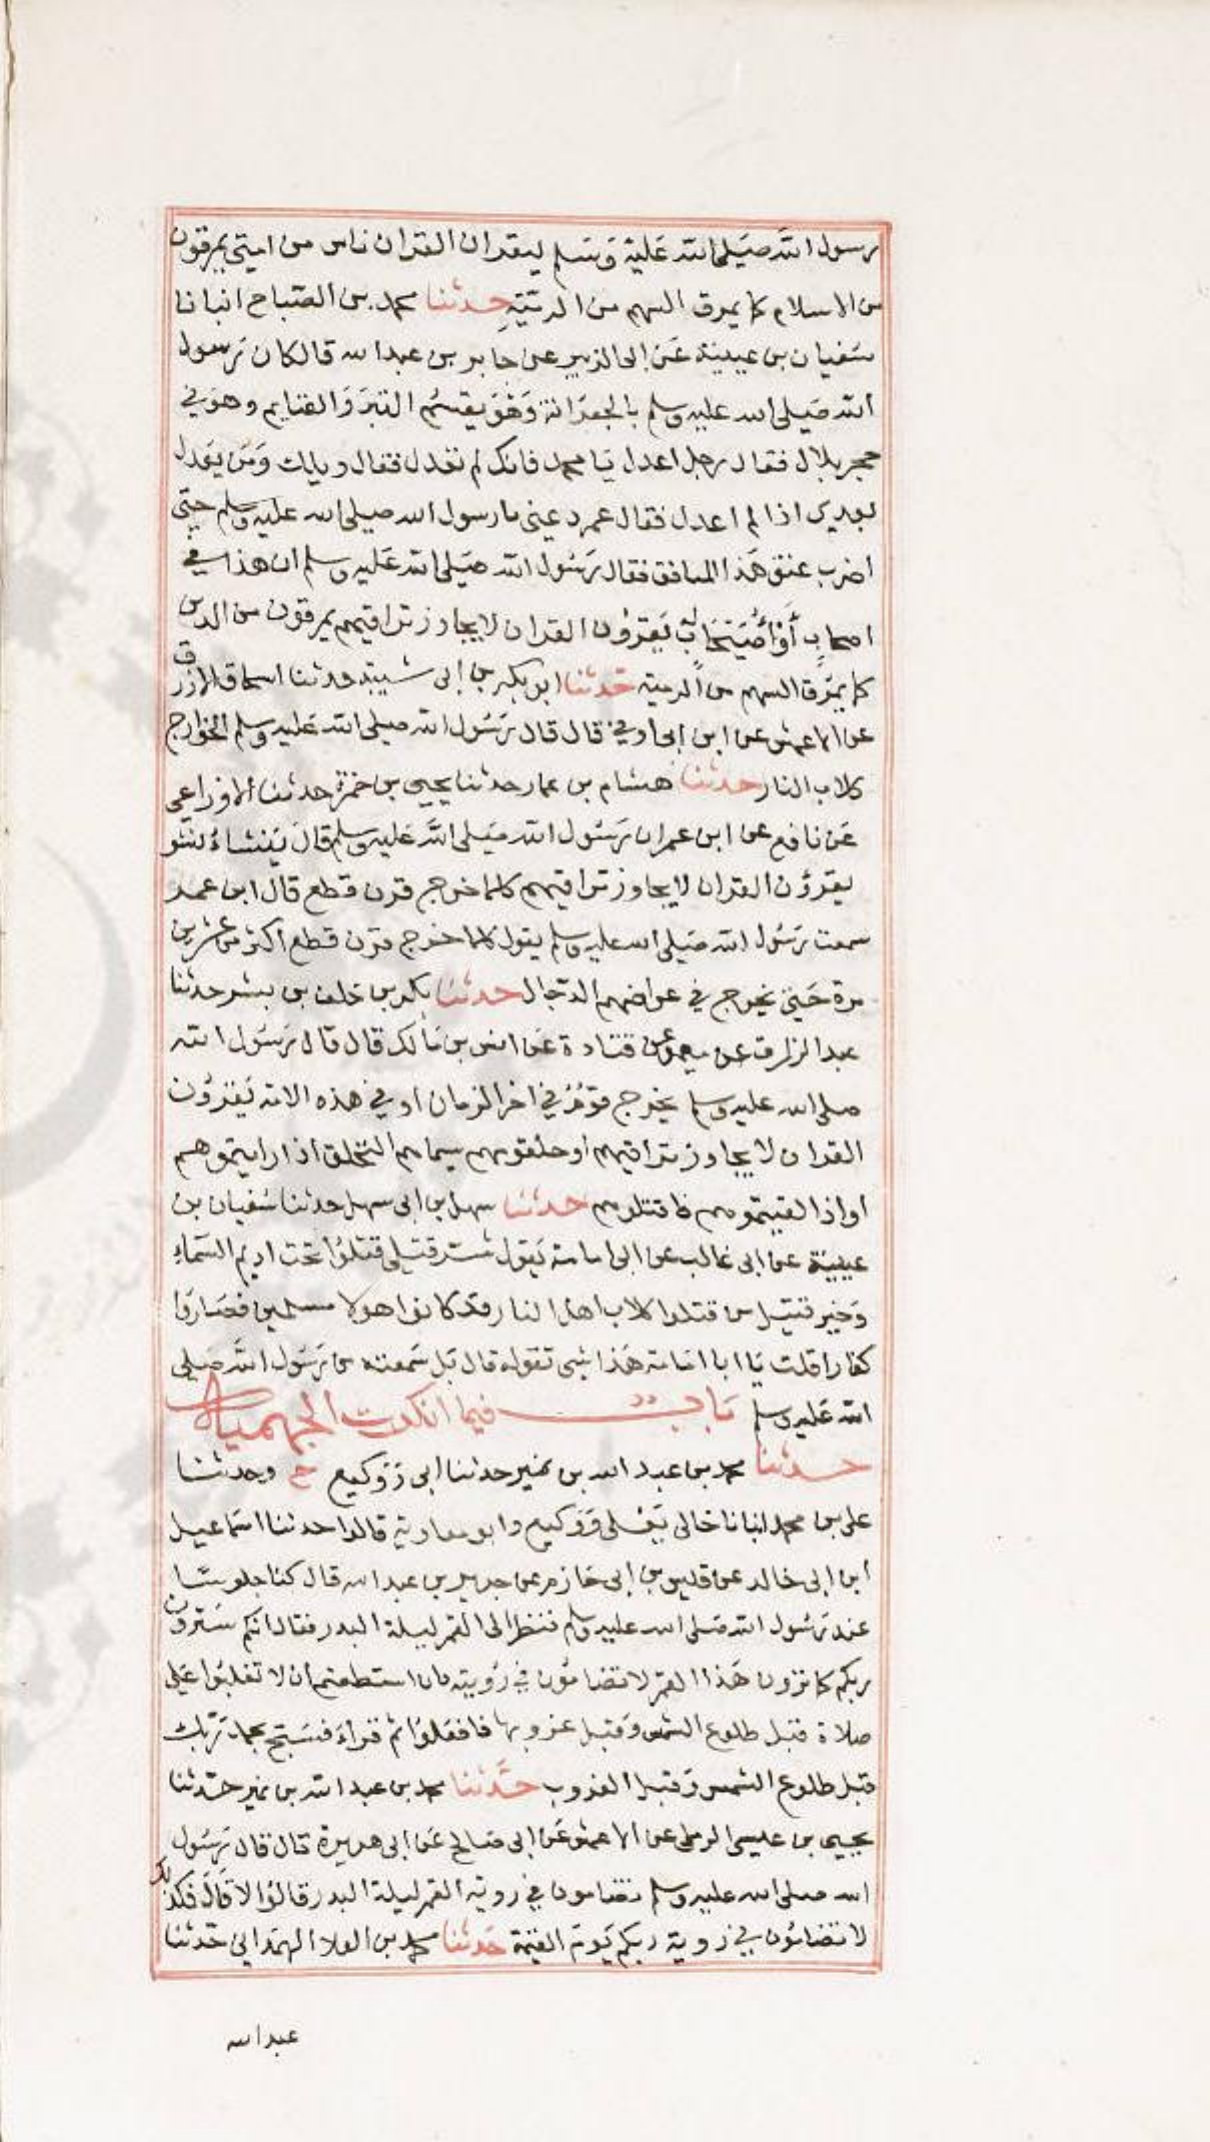 رسول الله صلى الله عليه وسلم ليقران القران ناس من امتي يمرقون
من الاسلام كما يمرق السهم من الرمية حدثنا محمد بن الصباح انبانا
سفيان بن عيينة عن ابى الزبير عن جابر بن عبدالله قال كان رسول
الله صلى الله عليه وسلم بالجعرانة وهو يقسم التبر والغنايم وهو في
حجر بلال فقال رجل اعدل يا محمد فانك لم تعدل فقال ويلك ومن يعدل
بعدي اذا لم اعدل فقال عمر دعني يارسول الله صلى الله عليه وسلم حتى
اضرب عنق هذا المنافق فقال رسول الله صلى الله عليه وسلم ان هذا في
اصحاب أو أصيحاب يقرؤن القران لا يجاوز تراقيهم يمرقون من الدين
كما يمرق السهم من الرمية حدثنا ابو بكر بن ابى شيبة حدثنا اسحاق الازرق
عن الاعمش عن ابن ابى اوفي قال قال رسول الله صلى الله عليه وسلم الخوارج
كلاب النار حدثنا هشام بن عمار حدثنا يحيى بن حمزة حدثنا الاوزاعي
عن نافع عن ابن عمر ان رسول الله صلى الله عليه وسلم قال ينشاء نشو
يقرؤن القران لا يجاوز تراقيهم كلما خرج قرن قطع قال ابن عمر
سمعت رسول الله صلى الله عليه وسلم يقول كلما خرج قرن قطع اكثر من عشرين
مرة حتى يخرج في عراضهم الدجال حدثنا بكر بن خلف بن بشر حدثنا
عبد الرزاق عن معمر عن قتادة عن انس بن مالك قال قال رسول الله
صلى الله عليه وسلم يخرج قوم في اخر الزمان او في هذه الامة يقرؤن
القران لا يجاوز تراقيهم او حلقومهم سيماهم التحلق اذا رايتموهم
او اذا لقيتموهم فاقتلوهم حدثنا سهل بن ابى سهل حدثنا سفيان بن
عيينة عن ابى غالب عن ابى امامة يقول شر قتلى قتلوا تحت اديم السماء
وخير قتيل من قتلوا كلاب اهل النار قد كانوا هولا مسلمين فصاروا
كفارا قلت يا ابا امامة هذا شي تقوله قال بل سمعته من رسول الله صلى
الله عليه وسلم باب فيما انكرت الجهمية
حدثنا محمد بن عبد الله بن نمير حدثنا ابى ووكيع ح وحدثنا
على بن محمد انبانا خالى يعلى ووكيع وابو معاوية قالوا حدثنا اسماعيل
ابن ابى خالد عن قيس بن ابى حازم عن جرير بن عبد الله قال كنا جلوسا
عند رسول الله صلى الله عليه وسلم فنظر الى القمر ليلة البدر فقال انكم سترون
ربكم كما ترون هذا القمر لا تضامون في رؤيته فان استطعتم ان لا تغلبوا على
صلاة قبل طلوع الشمس وقبل غروبها فافعلوا ثم قراء فسبح بحمد ربك
قبل طلوع الشمس وقبل الغروب حدثنا محمد بن عبد الله بن نمير حدثنا
يحيى بن عيسى الرملى عن الاعمش عن ابى صالح عن ابى هريرة قال قال رسول
الله صلى الله عليه وسلم تضامون في روية القمر ليلة البدر قالوا لا قال فكذلك
لا تضامون في روية ربكم يوم القيمة حدثنا محمد بن العلا الهمداني حدثنا
عبد الله